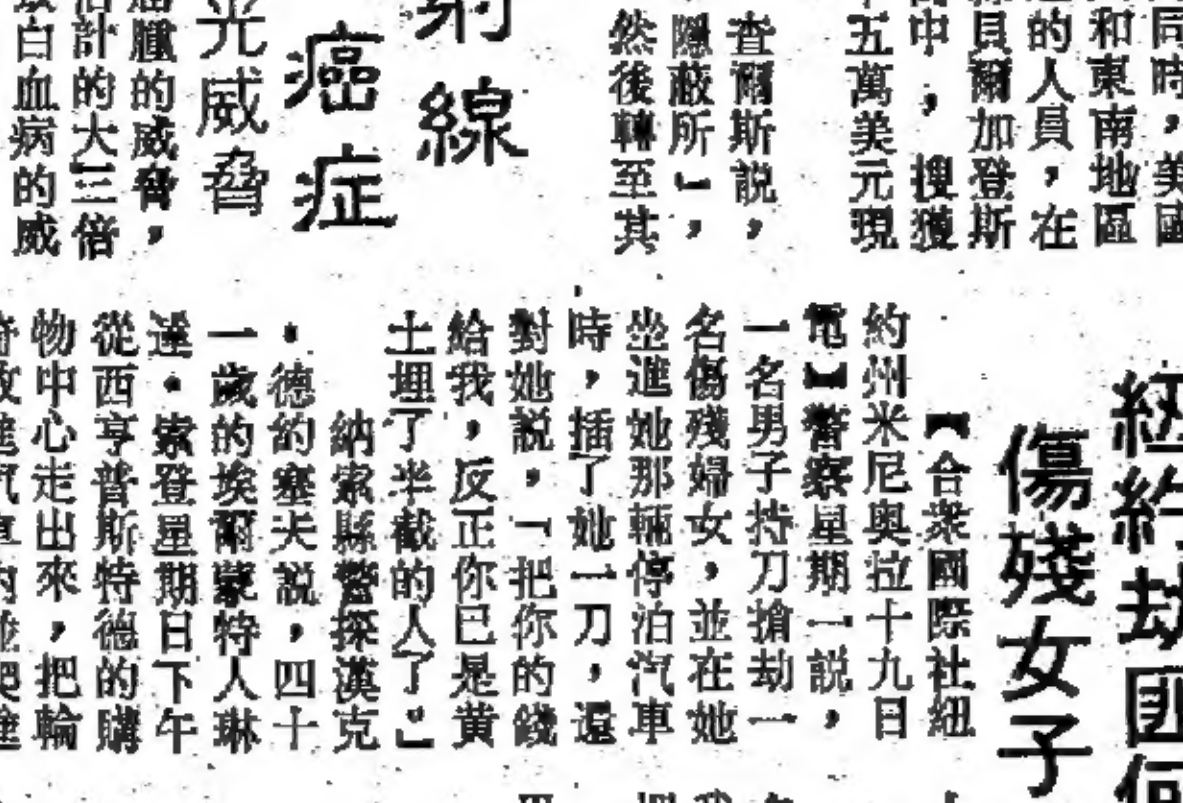 同時，美國
和東南地區
的人員，在
貝爾加登斯
中，搜獲
五萬美元現
查爾斯說，
隱蔽所」，
然後轉至其
射線
癌症
光威脅
腫的威脅，
計的大三倍
白血病的威
紐約劫匪何
傷殘女子
【合衆國際社紐
約州米尼奧拉十九日
電】警察星期一説，
一名男子持刀搶劫一
名傷殘婦女，並在她
坐進她那輛停泊汽車
時，插了她一刀，還
對她説，「把你的錢
給我，反正你已是黃
土埋了半截的人了」
納索縣警探漢克
・德約塞夫説，四十
一歲的埃爾蒙特人琳
達・索登星期日下午
從西亨普斯特德的購
物中心走出來，把輪